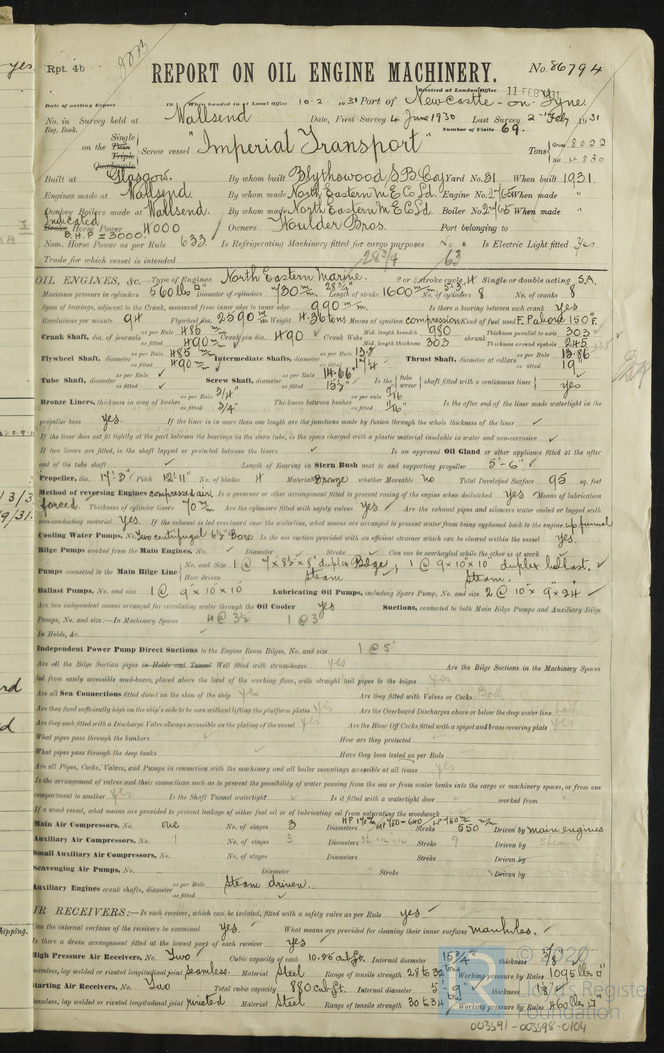 Rpt. 4b
REPORT ON OIL ENGINE MACHINERY.
No. 86794
Received at London Office 11 FEB 1931
Date of writing Report 19 When handed in at Local Office 10.2.1931 Port of Newcastle-on-Tyne
No. in Survey held at Wallsend Date, First Survey 4 June 1930 Last Survey 2nd Feby 1931
Reg. Book. Number of Visits 69.
on the Single Twin Triple Quadruple Screw vessel "Imperial Transport" Tons Gross 8022 Net 4830
Built at Glasgow. By whom built Blythswood S.B. Coy Yard No. 31 When built 1931.
Engines made at Wallsend. By whom made North Eastern M.E.C. Ld. Engine No. 2765 When made "
Donkey Boilers made at Wallsend. By whom made North Eastern M.E.C. Ld. Boiler No. 2765 When made "
Indicated Brake Horse Power 4000 Owners Houlder Bros. Port belonging to
B.H.P = 3000.
Nom. Horse Power as per Rule 633 Is Refrigerating Machinery fitted for cargo purposes No. Is Electric Light fitted Yes
Trade for which vessel is intended 28 3/4 63
OIL ENGINES, &c. Type of Engines North Eastern Marine. 2 or 4 stroke cycle 4 Single or double acting S.A.
Maximum pressure in cylinders 560 lbs □" Diameter of cylinders 730 m/m Length of stroke 1600 m/m No. of cylinders 8 No. of cranks 8
Span of bearings, adjacent to the Crank, measured from inner edge to inner edge 990 m/m Is there a bearing between each crank yes
Revolutions per minute 94 Flywheel dia. 2590 m/m Weight 4.36 tons Means of ignition compression Kind of fuel used F. P. above 150°F.
Crank Shaft, dia. of journals as per Rule 485 m/m as fitted 490 m/m Crank pin dia. 490 Crank Webs Mid. length breadth 980 Mid. length thickness 303 shrunk Thickness parallel to axis 303 Thickness around eyehole 245
Flywheel Shaft, diameter as per Rule 485 m/m as fitted 490 m/m Intermediate Shafts, diameter as per Rule as fitted Thrust Shaft, diameter at collars as per Rule 13.86 as fitted 19
Tube Shaft, diameter as per Rule as fitted Screw Shaft, diameter as per Rule 14.66" as fitted Is the tube screw shaft fitted with a continuous liner yes
Bronze Liners, thickness in way of bushes as per Rule 3/4" as fitted 3/4" Thickness between bushes as per Rule 9/16 as fitted 11/16 Is the after end of the liner made watertight in the
propeller boss yes. If the liner is in more than one length are the junctions made by fusion through the whole thickness of the liner ✓
If the liner does not fit tightly at the part between the bearings in the stern tube, is the space charged with a plastic material insoluble in water and non-corrosive ✓
If two liners are fitted, is the shaft lapped or protected between the liners ✓ Is an approved Oil Gland or other appliance fitted at the after
end of the tube shaft Length of Bearing in Stern Bush next to and supporting propeller 5'-6" ✓
Propeller, dia. 17'-3" Pitch 12'-11" No. of blades 4 Material Bronze whether Moveable no Total Developed Surface 95 sq. feet
Method of reversing Engines compressed air Is a governor or other arrangement fitted to prevent racing of the engine when declutched yes Means of lubrication
forced. Thickness of cylinder liners 70 m/m Are the cylinders fitted with safety valves yes Are the exhaust pipes and silencers water cooled or lagged with
non-conducting material Yes. If the exhaust is led overboard near the waterline, what means are arranged to prevent water from being syphoned back to the engine up funnel
Cooling Water Pumps, No. Two centrifugal 6½" Bore. Is the sea suction provided with an efficient strainer which can be cleared within the vessel yes.
Bilge Pumps worked from the Main Engines, No. ✓ Diameter Stroke ✓ Can one be overhauled while the other is at work ✓
Pumps connected to the Main Bilge Line No. and Size 1 @ 7 x 8½ x 8" duplex Bilge, 1 @ 9 x 10 x 10 duplex ballast. ✓
How driven Steam Steam.
Ballast Pumps, No. and size 1 @ 9" x 10 x 10 Lubricating Oil Pumps, including Spare Pump, No. and size 2 @ 10" x 9" x 24 ✓
Are two independent means arranged for circulating water through the Oil Cooler yes Suctions, connected to both Main Bilge Pumps and Auxiliary Bilge
Pumps, No. and size:—In Machinery Spaces 4 @ 3½ 1 @ 3"
In Holds, &c.
Independent Power Pump Direct Suctions to the Engine Room Bilges, No. and size 1 @ 5"
Are all the Bilge Suction pipes in Holds and Tunnel Well fitted with strum-boxes yes Are the Bilge Suctions in the Machinery Spaces
led from easily accessible mud-boxes, placed above the level of the working floor, with straight tail pipes to the bilges yes
Are all Sea Connections fitted direct on the skin of the ship yes Are they fitted with Valves or Cocks Both
Are they fixed sufficiently high on the ship's side to be seen without lifting the platform plates yes Are the Overboard Discharges above or below the deep water line both
Are they each fitted with a Discharge Valve always accessible on the plating of the vessel yes Are the Blow Off Cocks fitted with a spigot and brass covering plate yes
What pipes pass through the bunkers ✓ How are they protected ✓
What pipes pass through the deep tanks ✓ Have they been tested as per Rule
Are all Pipes, Cocks, Valves, and Pumps in connection with the machinery and all boiler mountings accessible at all times yes
Is the arrangement of valves and their connections such as to prevent the possibility of water passing from the sea or from water tanks into the cargo or machinery spaces, or from one
compartment to another yes Is the Shaft Tunnel watertight Is it fitted with a watertight door worked from
If a wood vessel, what means are provided to prevent leakage of either fuel oil or of lubricating oil from saturating the woodwork
Main Air Compressors, No. one No. of stages 3 Diameters Stroke 550 Driven by main engines
Auxiliary Air Compressors, No. 1 No. of stages 3 Diameters Stroke 9 Driven by Steam
Small Auxiliary Air Compressors, No. No. of stages Diameters Stroke Driven by
Scavenging Air Pumps, No. Diameter Stroke Driven by
Auxiliary Engines crank shafts, diameter as per Rule as fitted Steam driven.
AIR RECEIVERS:—Is each receiver, which can be isolated, fitted with a safety valve as per Rule yes
Can the internal surfaces of the receivers be examined yes. What means are provided for cleaning their inner surfaces manholes.
Is there a drain arrangement fitted at the lowest part of each receiver yes
High Pressure Air Receivers, No. Two Cubic capacity of each 10.85 cub.ft. Internal diameter 15 3/4" thickness 5/8"
Seamless, lap welded or riveted longitudinal joint seamless. Material Steel Range of tensile strength 28 to 32 tons Working pressure by Rules 1095 lbs □"
Starting Air Receivers, No. Two Total cubic capacity 880 cub.ft. Internal diameter 5'-9" thickness
Seamless, lap welded or riveted longitudinal joint riveted Material Steel Range of tensile strength 30 to 34 Working pressure by Rules 460 lbs □"
© 2020
Lloyd's Register
Foundation
003591-003598-0104